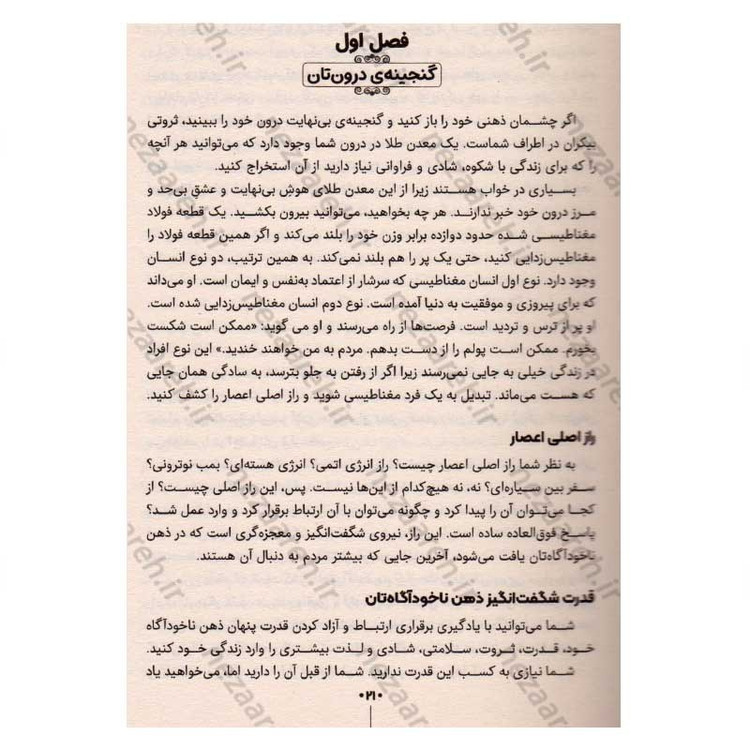 فصل اول
گنجینه‌ی درون‌تان
اگر چشمان ذهنی خود را باز کنید و گنجینه‌ی بی‌نهایت درون خود را ببینید، ثروتی
بیکران در اطراف شماست. یک معدن طلا در درون شما وجود دارد که می‌توانید هر آنچه
را که برای زندگی با شکوه، شادی و فراوانی نیاز دارید از آن استخراج کنید.
بسیاری در خواب هستند زیرا از این معدن طلای هوش بی‌نهایت و عشق بی‌حد و
مرز درون خود خبر ندارند. هر چه بخواهید، می‌توانید بیرون بکشید. یک قطعه فولاد
مغناطیسی شده حدود دوازده برابر وزن خود را بلند می‌کند و اگر همین قطعه فولاد را
مغناطیس‌زدایی کنید، حتی یک پر را هم بلند نمی‌کند. به همین ترتیب، دو نوع انسان
وجود دارد. نوع اول انسان مغناطیسی که سرشار از اعتماد به‌نفس و ایمان است. او می‌داند
که برای پیروزی و موفقیت به دنیا آمده است. نوع دوم انسان مغناطیس‌زدایی شده است.
او پر از ترس و تردید است. فرصت‌ها از راه می‌رسند و او می گوید: «ممکن است شکست
بخورم. ممکن است پولم را از دست بدهم. مردم به من خواهند خندید.» این نوع افراد
در زندگی خیلی به جایی نمی‌رسند زیرا اگر از رفتن به جلو بترسد، به سادگی همان جایی
که هست می‌ماند. تبدیل به یک فرد مغناطیسی شوید و راز اصلی اعصار را کشف کنید.
راز اصلی اعصار
به نظر شما راز اصلی اعصار چیست؟ راز انرژی اتمی؟ انرژی هسته‌ای؟ بمب نوترونی؟
سفر بین سیاره‌ای؟ نه، نه هیچ‌کدام از این‌ها نیست. پس، این راز اصلی چیست؟ از
کجا می‌توان آن را پیدا کرد و چگونه می‌توان با آن ارتباط برقرار کرد و وارد عمل شد؟
پاسخ فوق‌العاده ساده است. این راز، نیروی شگفت‌انگیز و معجزه‌گری است که در ذهن
ناخودآگاه‌تان یافت می‌شود، آخرین جایی که بیشتر مردم به دنبال آن هستند.
قدرت شگفت‌انگیز ذهن ناخودآگاه‌تان
شما می‌توانید با یادگیری برقراری ارتباط و آزاد کردن قدرت پنهان ذهن ناخودآگاه
خود، قدرت، ثروت، سلامتی، شادی و لذت بیشتری را وارد زندگی خود کنید.
شما نیازی به کسب این قدرت ندارید. شما از قبل آن را دارید اما، می‌خواهید یاد
•۲۱•
nezaareh.ir